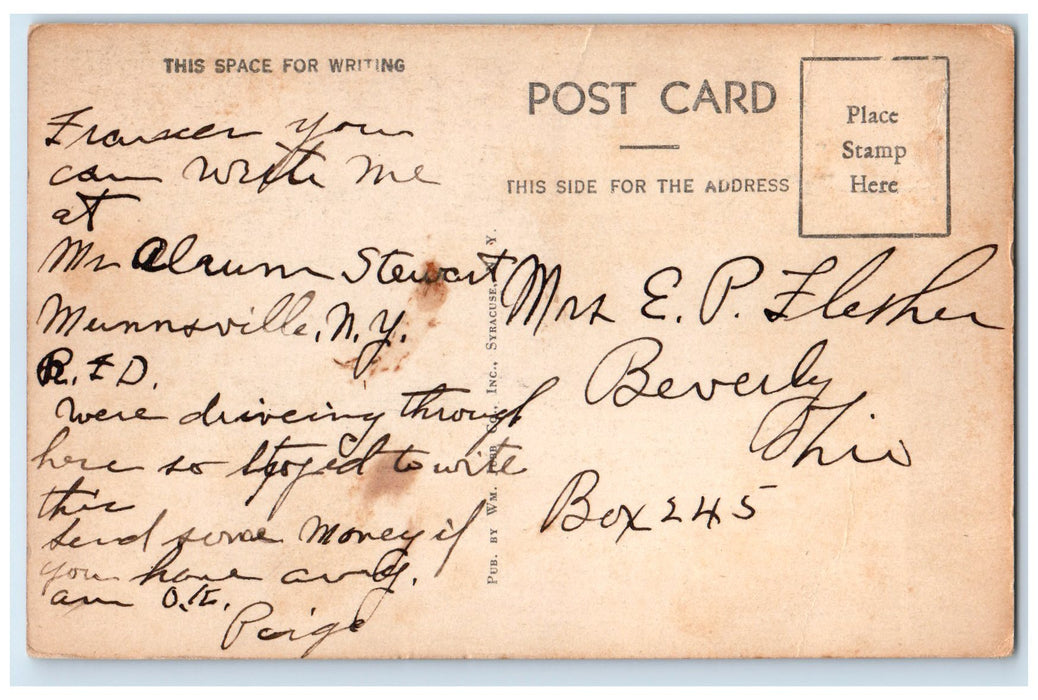 THIS SPACE FOR WRITING
you
can write me
at
Mr Stewart
Munnsville, N.Y.
R.F.D.
were driveing through
here so to write
this
send some money if
you have any.
am O.K.
Paige
PUB. BY WM. INC., SYRACUSE, N. Y.
POST CARD
THIS SIDE FOR THE ADDRESS
Place
Stamp
Here
Mrs E. P. Flesher
Beverly
Ohio
Box 245